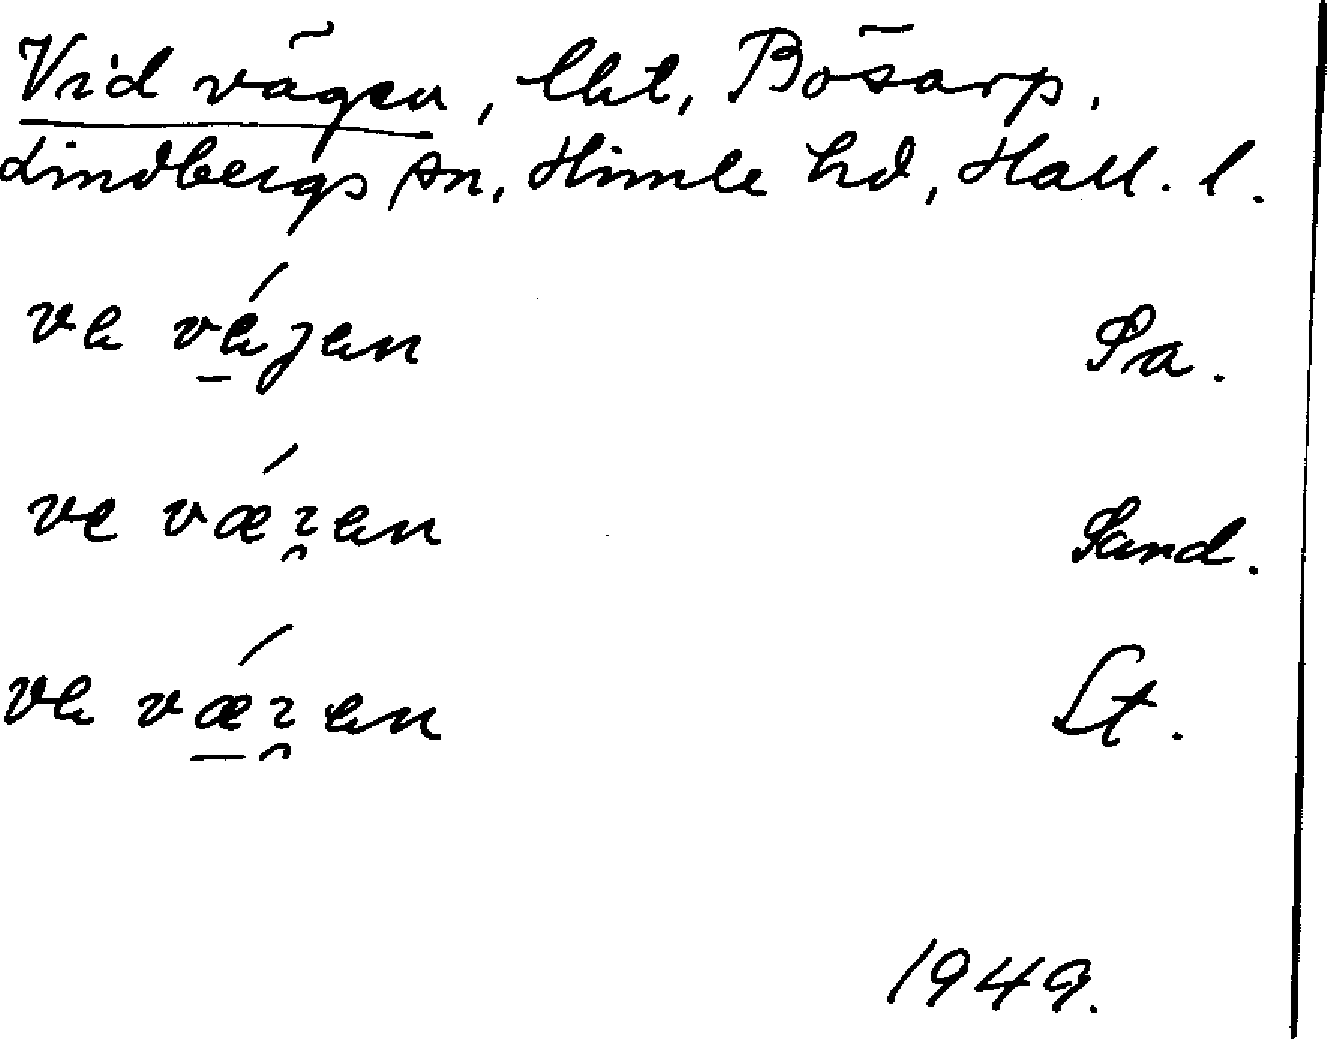 Vid vägen, lht, Bösarp.
Lindbergs sn, Himle hd, Hall. l.
ve vé̱jen Sa.
ve vǽɿ̯en Sand.
ve vǽ̱ɿ̯en St.
1949.